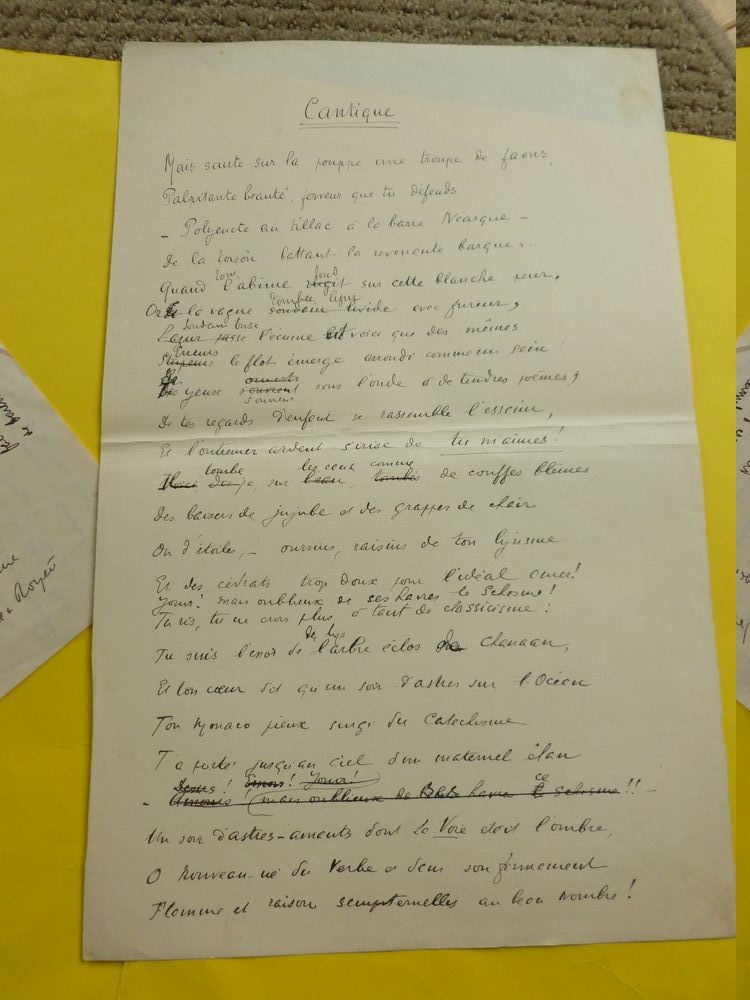 Cantique
Mais saute sur la pouppe une troupe de faons,
Palpitante beauté, ferveur que tu défends
- Polyeucte au tillac à la barre Néarque -
De la toison battant la revenante barque...
Quand l'abîme rugit sur cette blanche peur,
fond
Or la vague soudain livide avec fureur,
tombée
Soudain brise
l'écume voici que des mêmes
le flot émerge arrondi comme un sein!
yeux s'ouvrent sous l'onde à de tendres poèmes,
ouverts
s'ouvrent
De tes regards d'enfant se rassemble l'essaim,
Et l'outremer ardent s'irise de tu m'aimes!
tombe les eaux comme
sur l'eau, tombés de couffes blêmes
Des baisers de jujube et des grappes de chair
Ou d'étoiles, - oursins, raisins de ton lyrisme
Et des cédrats trop doux pour l'idéal amer!
Jouir! mais oublieux de ses havres le schisme!
Tu ris, tu ne crois plus à tant de classicisme!
Tu suis l'essor de l'arbre éclos de Chanaan,
Et ton cœur tel qu'un soir d'astres sur l'Océan
Ton Monaco pieux surgi du Catéchisme
T'a porté jusqu'au ciel d'un maternel élan
Jouir!
(mais oublieux de havres ce schisme!! -
Un soir d'astres-amants dont la Voie était l'ombre,
O nouveau-né du Verbe et dans son firmament
Flamme et raison sempiternelles au beau Nombre!